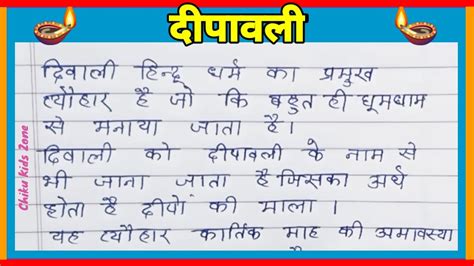 दीपावली
दिवाली हिन्दू धर्म का प्रमुख
त्यौहार है जो कि बहुत ही धूमधाम
से मनाया जाता है।
दिवाली को दीपावली के नाम से
भी जाना जाता है जिसका अर्थ
होता है दीपों की माला ।
यह त्यौहार कार्तिक माह की अमावस्या
Chiku Kids Zone